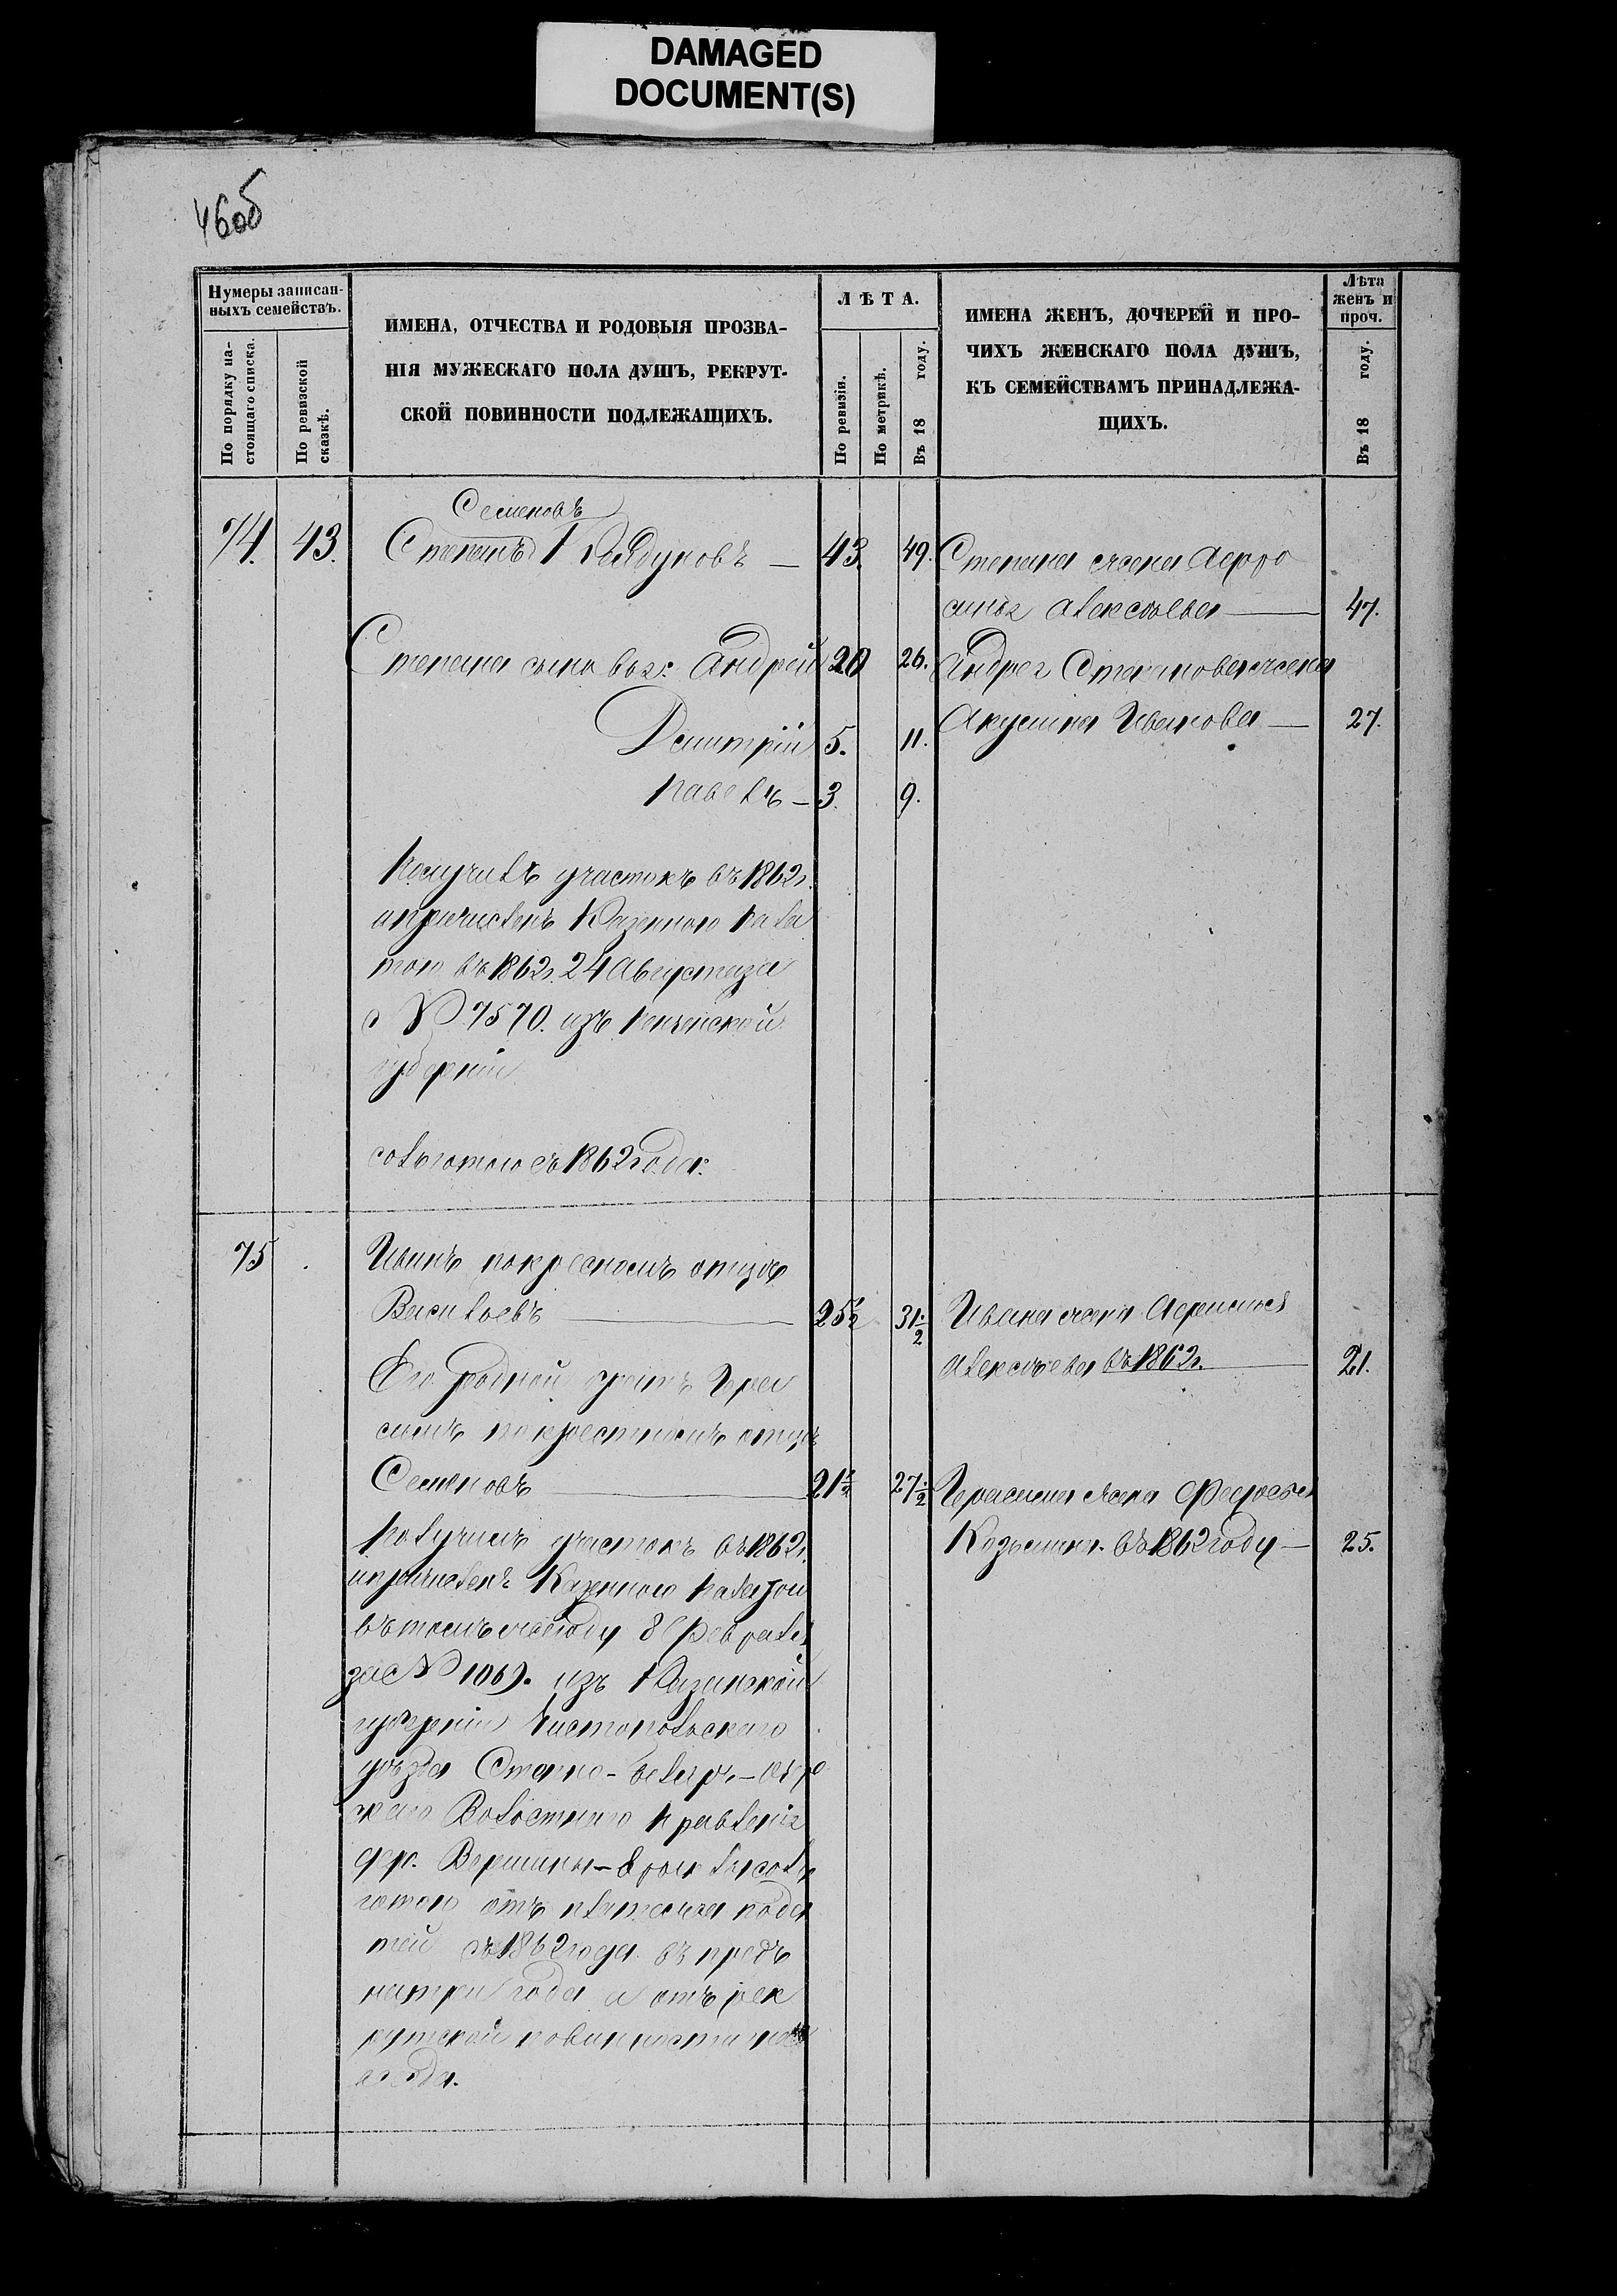 DAMAGED
DOCUMENT(S)
46об
Нумеры записан-
ныхъ семействъ.
По порядку на-
стоящаго списка.
По ревизской
сказкѣ.
ИМЕНА, ОТЧЕСТВА И РОДОВЫЯ ПРОЗВА-
НІЯ МУЖЕСКАГО ПОЛА ДУШЪ, РЕКРУТ-
СКОЙ ПОВИННОСТИ ПОДЛЕЖАЩИХЪ.
ЛѢТА.
По ревизіи.
По метрикѣ.
Въ 18 году.
ИМЕНА ЖЕНЪ, ДОЧЕРЕЙ И ПРО-
ЧИХЪ ЖЕНСКАГО ПОЛА ДУШЪ,
КЪ СЕМЕЙСТВАМЪ ПРИНАДЛЕЖА-
ЩИХЪ.
Лѣта
женъ и
проч.
Въ 18 году.
Семеновъ
74. 43. Степанъ — 43. 49. Степана жена Аефро
синья Алексѣева — 47.
Степана сыновья: Андрей 20 26. Андрея Степанова жена
Акулина Иванова — 27.
Дмитрій 5. 11.
Павелъ — 3. 9.
Получилъ участокъ въ 1862г.
ипричисленъ Казенною Пала
тою въ 1862г. 24 Августа за
№ 7570. изъ Пензенской
губерніи
сольготою съ 1862 года.
75 Иванъ покрестномъ отцѣ
Васильевъ — 25½ 31½ Ивана жена
Алексѣева въ 1862г. — 21.
Его родной братъ Гера
симъ по крестномъ отцѣ
Семеновъ — 21½ 27½ Герасима жена Федосья
Козьмина. въ 1862 году — 25.
Получилъ участокъ въ 1862г.
ипричисленъ Казенною Палатою
въ томъ же году 8 Февраля
за № 1069. изъ Казанской
губерніи Чистопольскаго
уѣзда
Волостнаго Правленія
дер. Вершины
готою отъ платежа пода
тей съ 1862 года. въ предь
натри года а отъ рек
рутской повинности
года.